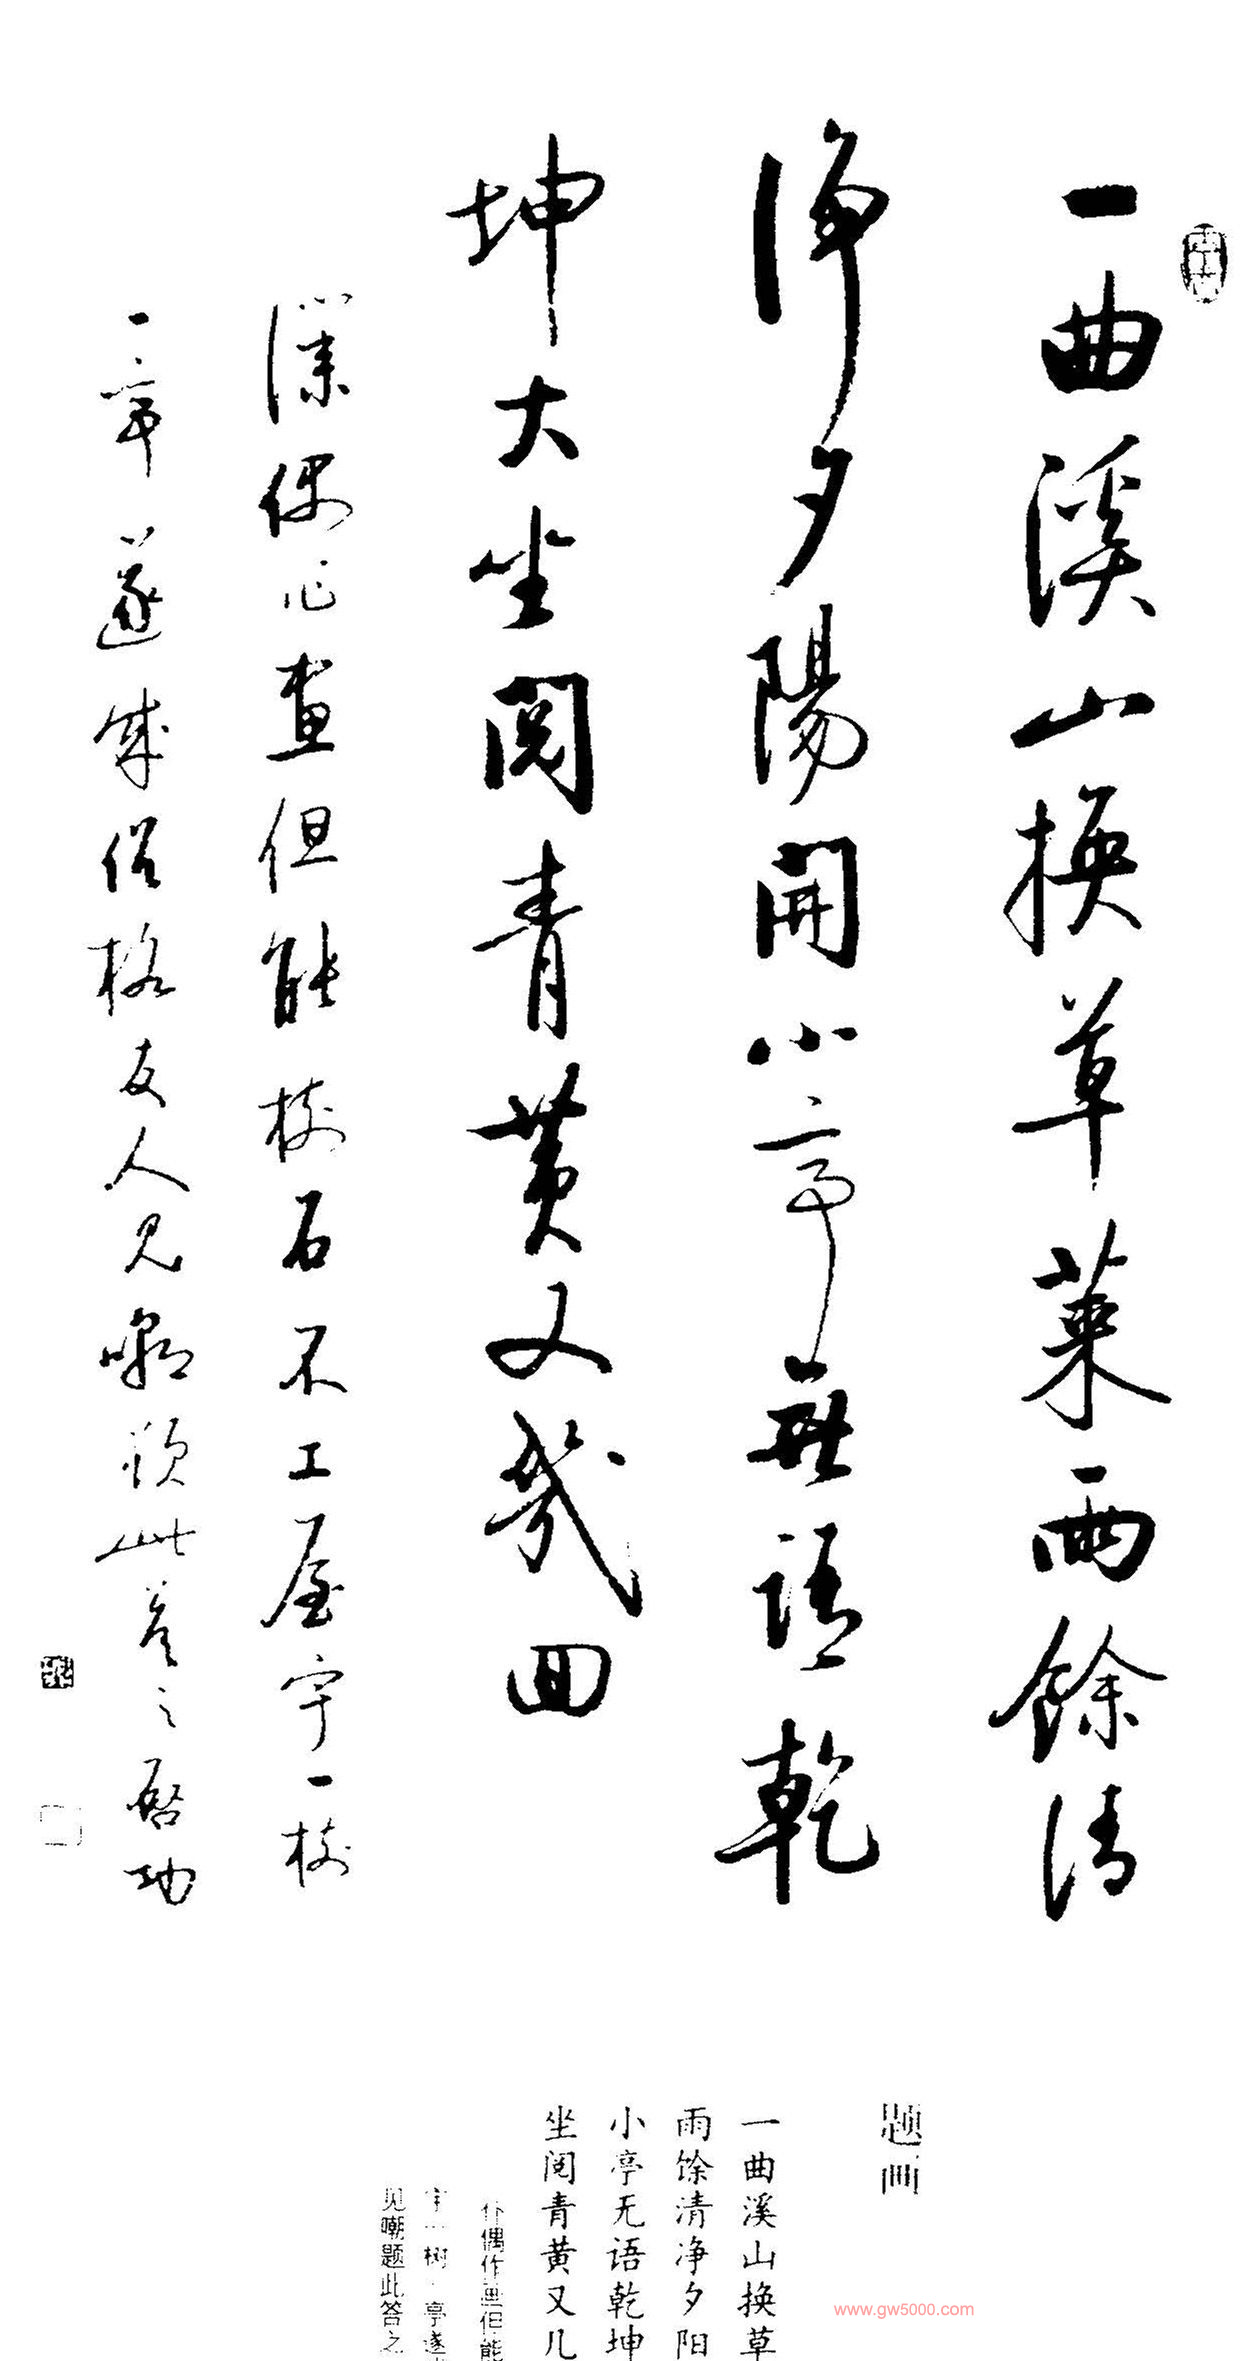 一曲溪山換草萊雨餘清
淨夕陽開小亭無語乾
坤大坐閱青黃又幾回
僕偶作畫但能樹石不工屋宇一樹
一亭遂成俗格友人見嘲題此答之啓功
题画
一曲溪山换草
雨馀清净夕阳
小亭无语乾坤
坐阅青黄又几
仆偶作画但能
宇一树一亭遂
见嘲题此答之
www.gw5000.com